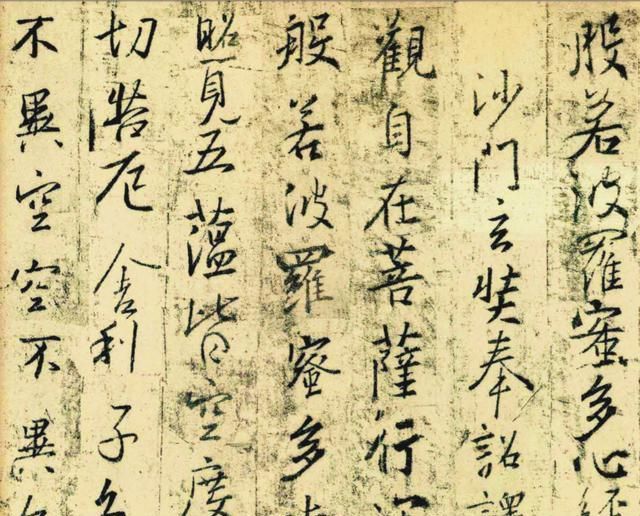 般若波羅蜜多心經
沙門玄奘奉詔譯
觀自在菩薩行深
般若波羅蜜多
照見五蘊皆空度
切苦厄舍利子
不異空空不異